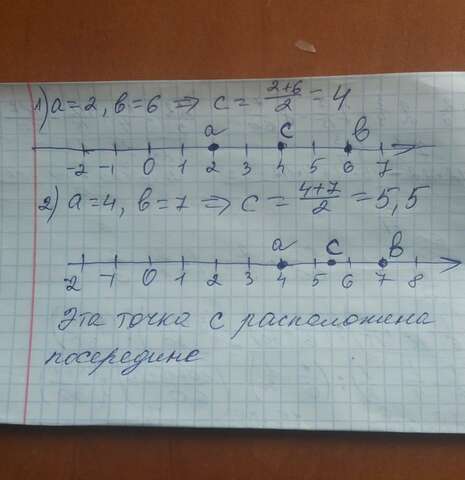 1) a=2, b=6 ⇒ c = (2+6)/2 = 4
a c b
-2 -1 0 1 2 3 4 5 6 7
2) a=4, b=7 ⇒ c = (4+7)/2 = 5,5
a c b
-2 -1 0 1 2 3 4 5 6 7 8
Эта точка с расположена
посередине